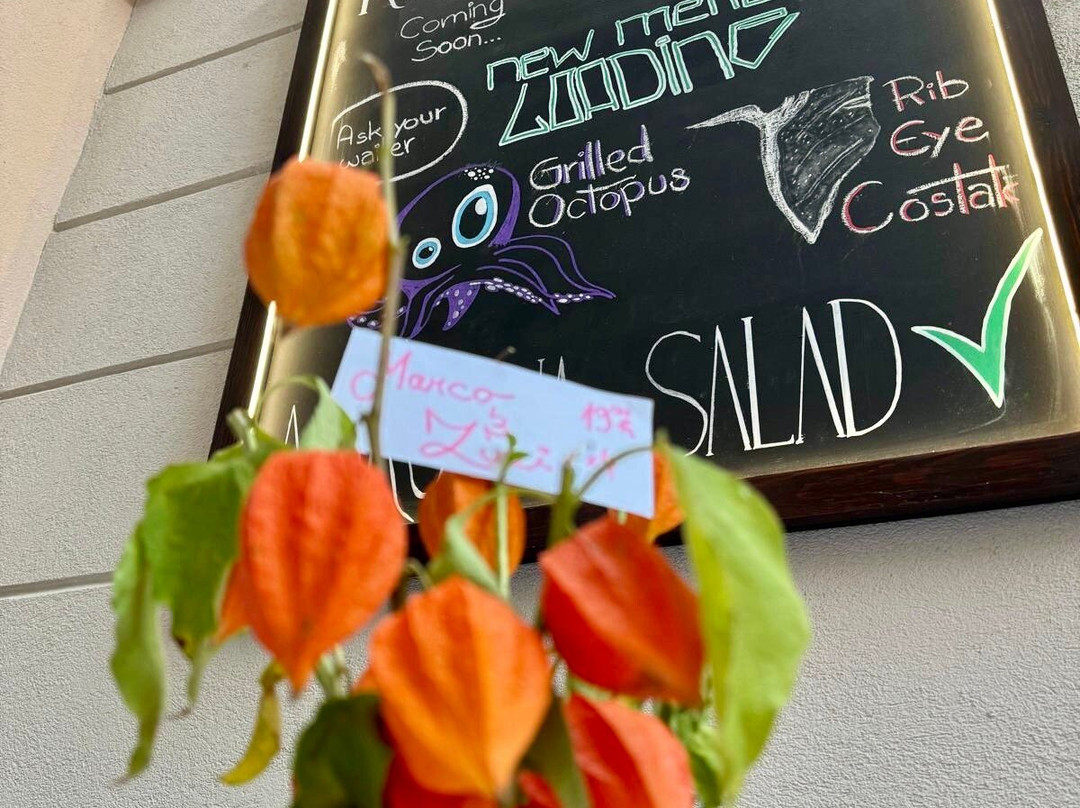 Coming
Soon...
new menu
LOADING
Ask your
waiter
Grilled
Octopus
Rib
Eye
Costak
SALAD
Marco